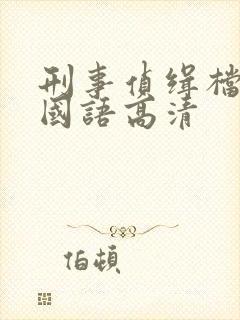 刑事偵緝檔
國語高清
伯頓